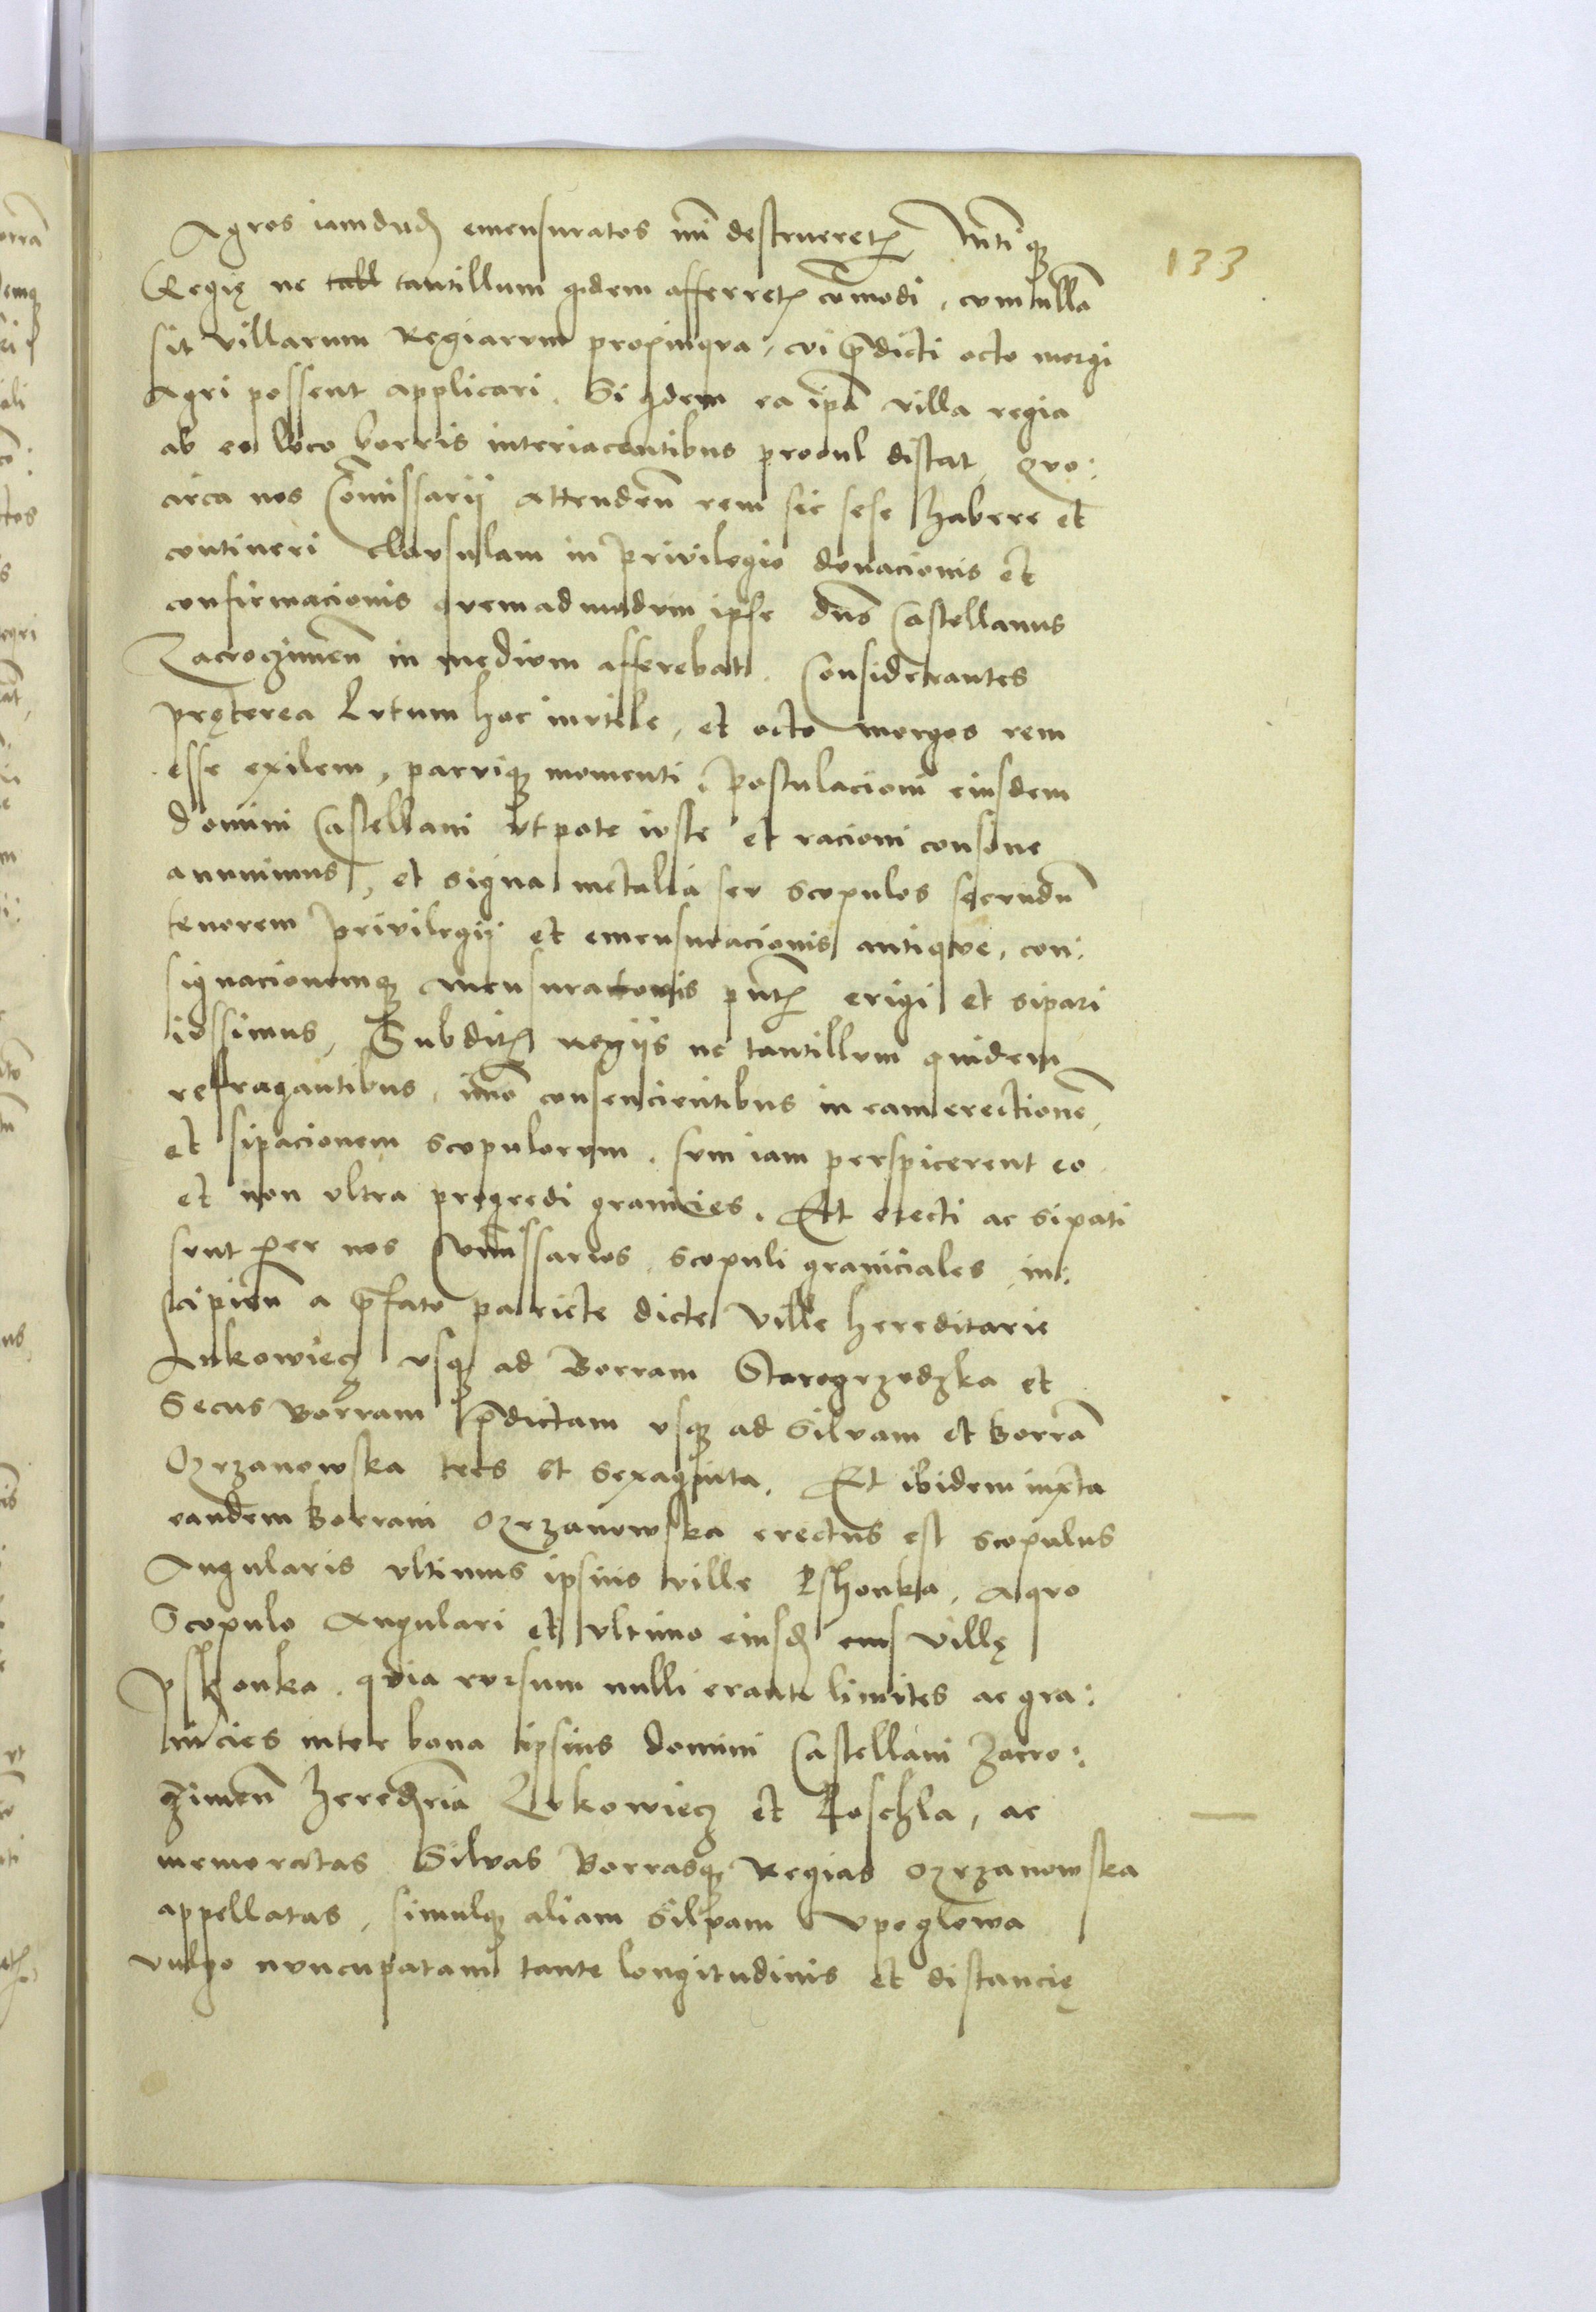 133
Agros iamdud emensuratos nni destrueret Mti q
Regię ne tall tantillum qdem afferret comodi, cum nulla
sit villarum Regiarum propinqva, cui pdicti octo morgi
Agri possent applicari. Siqdem ea ipa villa regia
ab eo loco borris interiacentibus procul distat, Qvo:
circa nos Comissarij Attenden rem sic sese habere et
contineri clausulam in Privilegio donacionis et
confirmacionis quemadmodum ipse dns Castellanus
Zacrocimen in medium afferebat. Considerantes
pręterea Lutum hoc inutile, et octo morgos rem
esse exilem, parviq momenti, Postulacioni eiusdem
domini Castellani utpote iuste et racioni consone
annuimus, et signa metalia seu scopulos secundu
tenorem Privilegij et emensuracionis antique, con:
signacionemq mensuratoris pnt erigi et sipari
iussimus, Subdit regijs ne tantillum quidem
refragantibus, imo consencientibus in eam erectione,
et sipacionem scopulorum, sum iam perspicerent eo
et non ultra progredi granicies. Et erecti ac sipati
sunt per nos Comissarios scopuli graniciales in:
cipien a pfato pariete dicte ville hereditarie
Lukowiecz usq ad Borram Starogrzodzka et
Secus Borram pdictam usq ad Silvam et borra
Ozrzanowska tres et sexaginta. Et ibidem iuxta
eandem borram Ozrzanowska erectus est scopulus
Angularis ultimus ipsius ville Pshonka, Aqvo
Scopulo Angulari et ultimo eiusd eius villę
Pshonka, qvia rursum nulli erant limites ac gra:
nicies inter bona ipsius domini Castellani Zacro:
czimen heredria Lukowiecz et Koschla, ac
memoratas Silvas Borrasq Regias Ozrzanowska
appellatas, simulq aliam Silvam Upoglowa
vulgo nuncupatam tante longitudinis et distancię